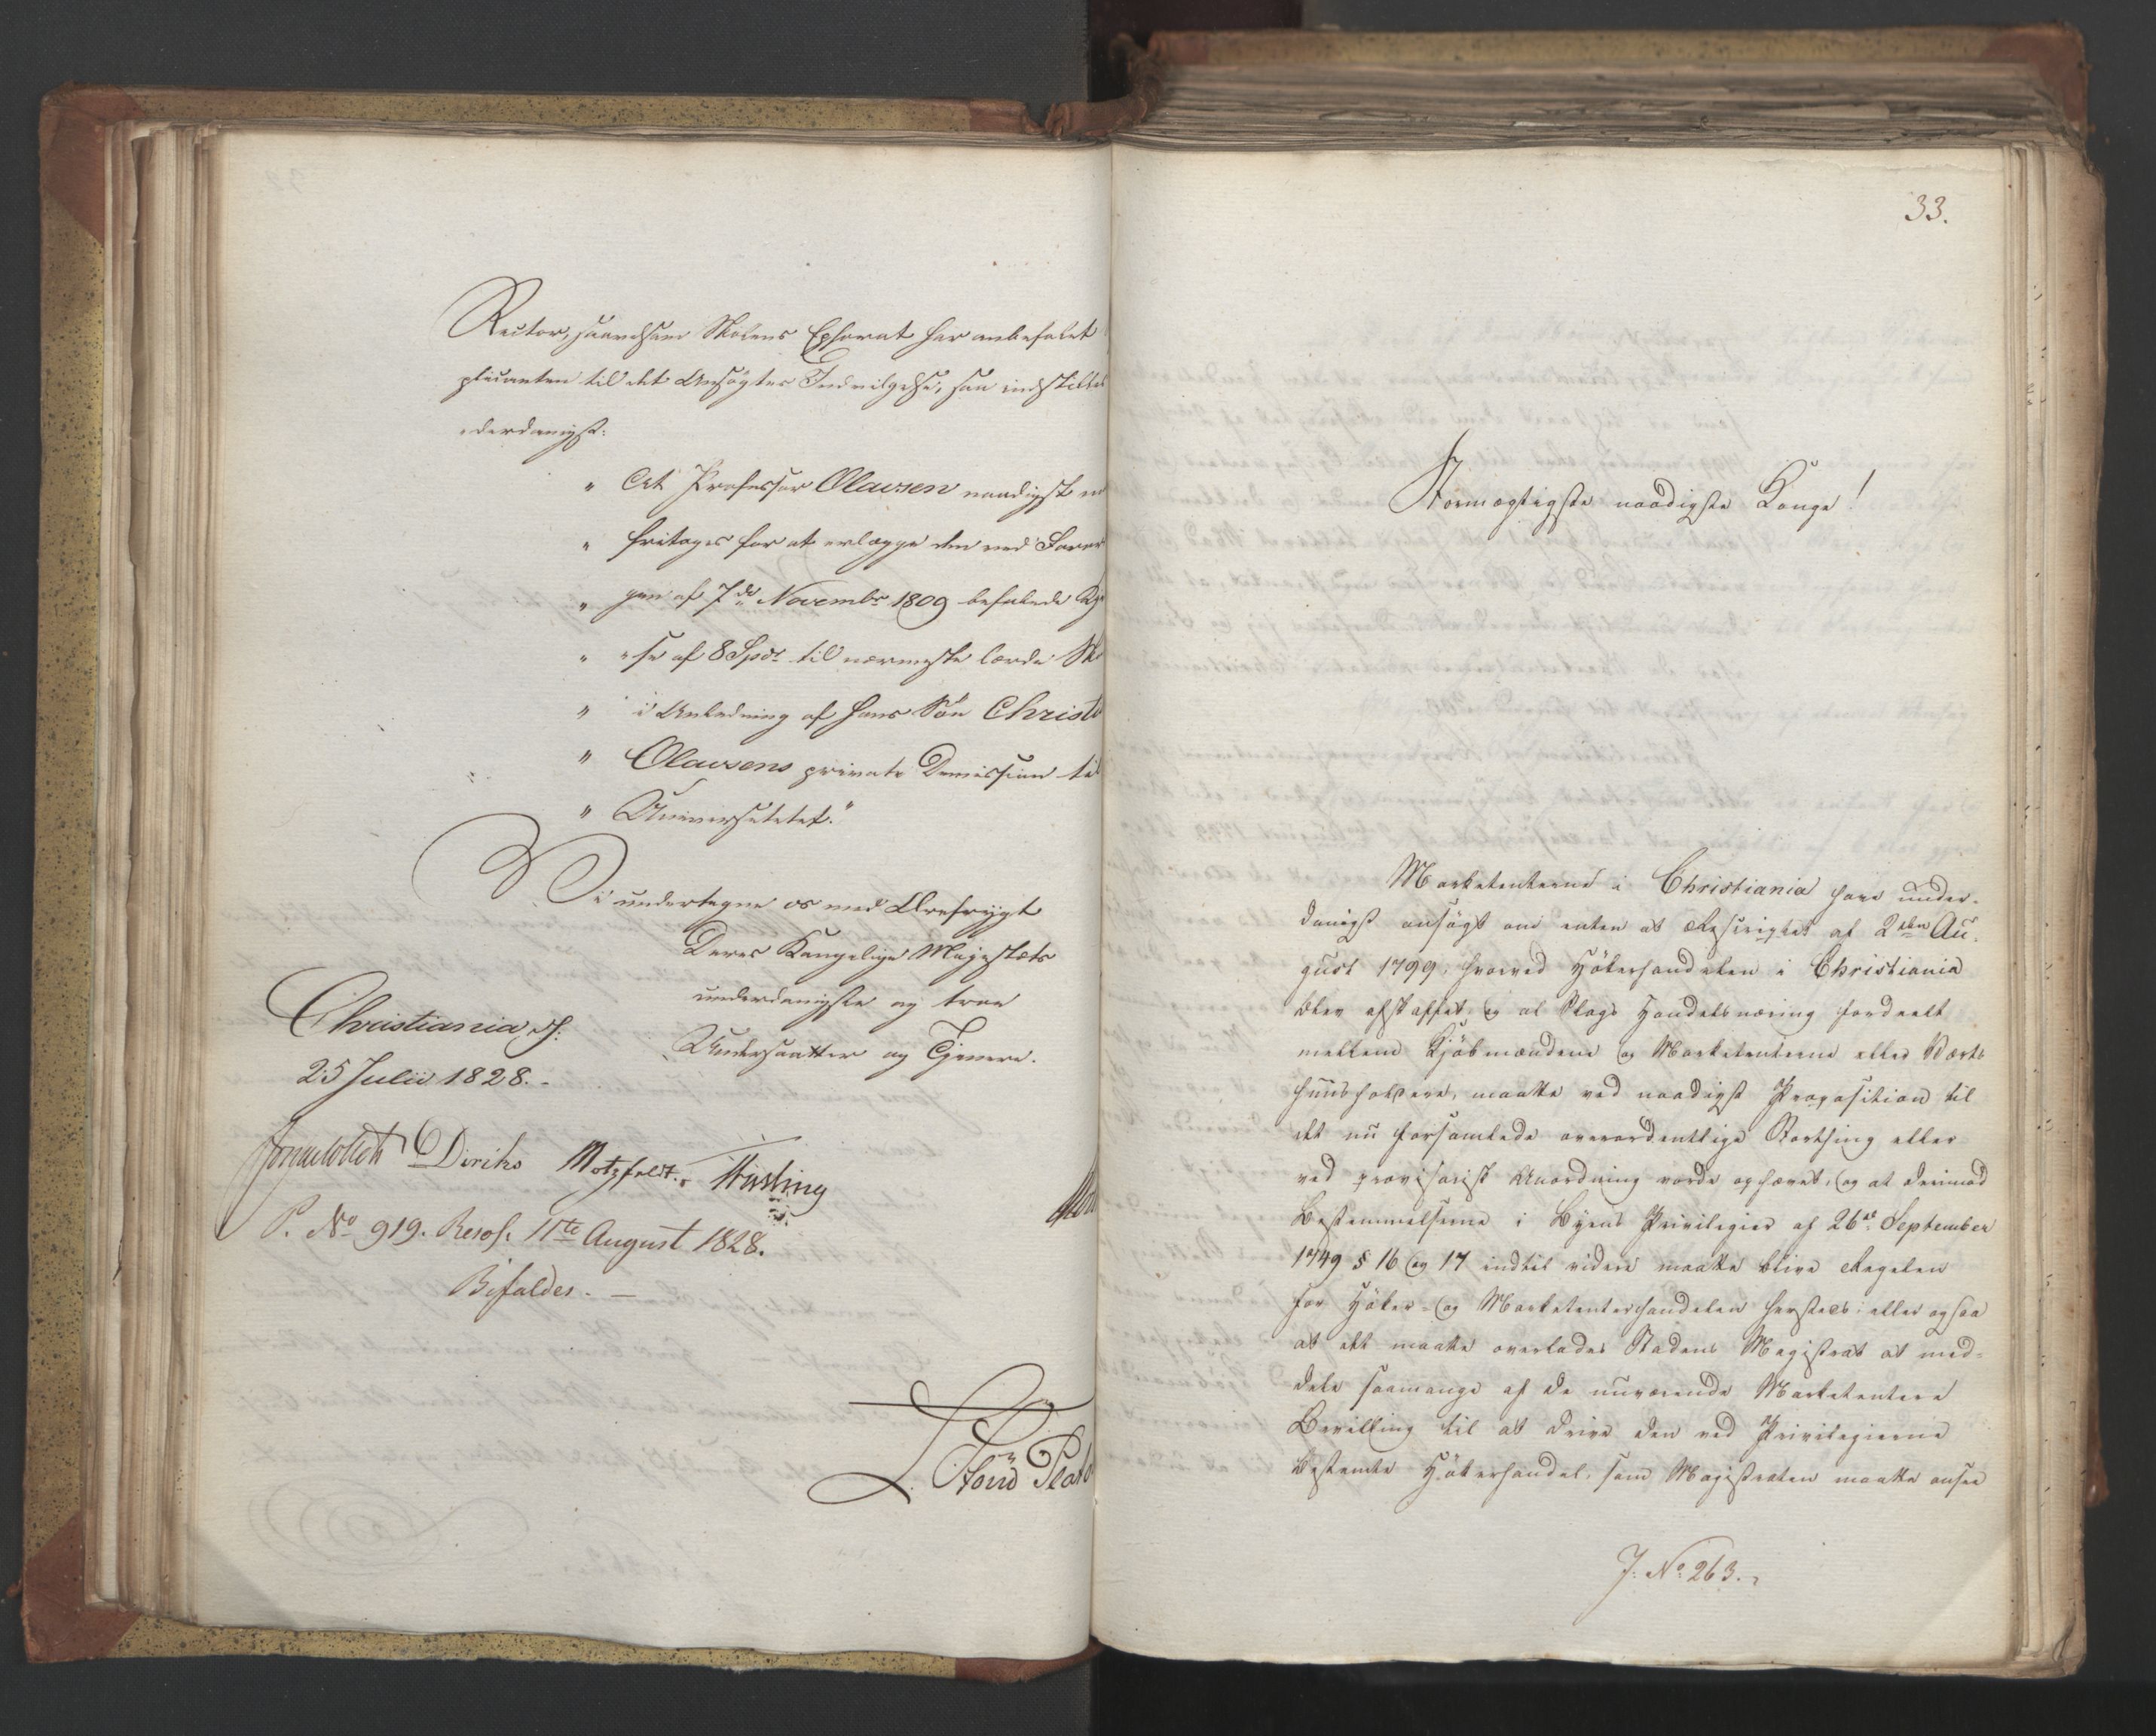 Rector, saavelsom Skolens Ephorat har anbefalet
plicanten til det Ansögtes Indvilgelse, saa indstilles
derdanigst:
" At Professor Olavsen naadigst
" fritages for at erlægge den ved Foror
" gen af 7de Novembr 1809 befalede
" se af 8 Spdr til nærmeste lærde Sko
" i Anledning af hans Sön Christ
" Olavsens private Demission til
" Universitetet."
Vi undertegne os med Ærefrygt
Deres Kongelige Majestæts
underdanigste og troe
Undersaatter og Tjenere.
Christiania d:
25 Julii 1828.-
Jonas Collett Diriks Motzfeldt. Hirsling
P. No 919. Resol. 11te August 1828.
Bifaldes. -
33.
Stormægtigste naadigste Konge!
Marketenterne i Christiania have under-
danigst ansögt om enten at Rescriptet af 2den Au-
gust 1799, hvorved Hökerhandelen i Christiania
blev afskaffet, og al Slags Handelsnæring fordeelt
mellem Kjöbmændene og Marketenterne eller Værts-
huusholdere, maatte ved naadigst Proposition til
det nu forsamlede overordentlige Storthing eller
ved provisorisk Anordning vorde ophævet, og at derimod
Bestemmelserne i Byens Privilegier af 26de September
1749 § 16 og 17 indtil videre maatte blive Regelen
for Höker- og Marketenterhandelen hersteds; eller ogsaa
at det maatte overlades Stadens Magistrat at med-
dele saamange af de nuværende Marketentere
Bevilling til at drive den ved Privilegierne
bestemte Hökerhandel, som Magistraten maatte ansee
J: No 263.